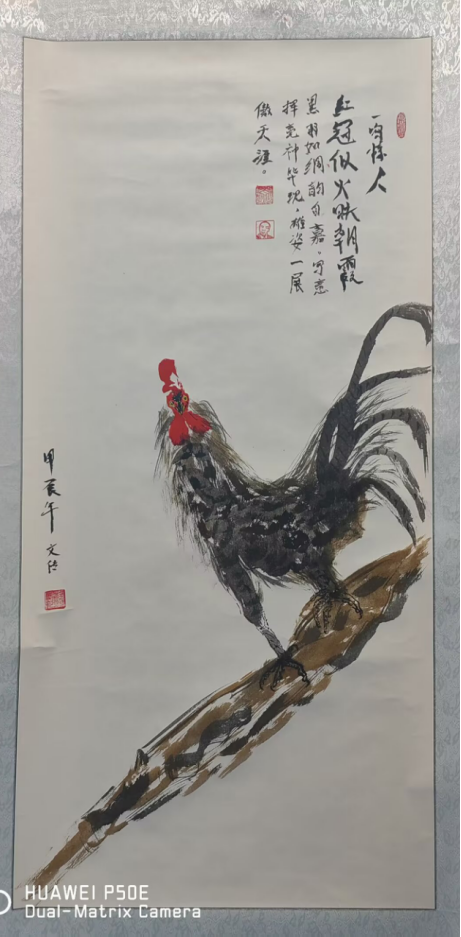 一鸣惊人
红冠似火映朝霞
黑羽如绸韵自嘉。写意
挥毫神毕现。雄姿一展
傲天涯。
甲辰年 文
HUAWEI P50E
Dual-Matrix Camera